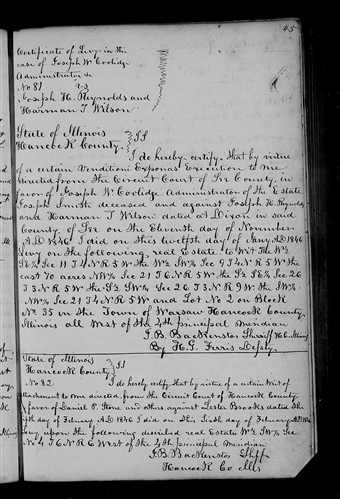 45
Certificate of Levy in the
case of Joseph W. Coolidge
Administrator &c
No 81 vs
Joseph H. Reynolds and
Harman T Wilson
State of Illinois
Hancock County. } SS
I do hereby certify that by virtue
of a certain Venditioni Exponas Execution to me
directed from the Circuit Court of Lee County, in
favor of Joseph W Coolidge Administrator of the Estate
Joseph Smith deceased and against Joseph H. Reynolds
and Harman T Wilson dated at Dixon in said
County of Lee on the Eleventh day of November
A.D 1846. I did on this twelfth day of Jany A.D 1846
Levy on the following real Estate to wit The W½
SE¼ Sec 11 T 4 N R 5 W the W½ SW¼ Sec 9 T 4 N R 5 W the
East 70 acres NW¼ Sec 21 T 6 N R 5 W the E½ SE¼ Sec 26
T 3 N R 5 W the E½ SW¼ Sec 26 T 3 N R 9 W the SW¼
NW¼ Sec 21 T 4 N R 5 W and Lot No 2 on Block
No 35 in the Town of Warsaw Hancock County
Illinois all West of the 4th principal Meridian
J. B. Backenstos Sheriff H. C.
By H. G. Ferris Depty.
State of Illinois
Hancock County } SS
No 82. I do hereby certify, that by virtue of a certain Writ of
Attachment to me directed from the Circuit Court of Hancock County
favor of Daniel P. Stone and others, against Lester Brooks dated the
day of February A.D 1846 I did on this Tenth day of February A.D 1846
Levy upon the following described real Estate W½ SW¼ Sec
No 4 T 6 N R 6 West of the 4th principal Meridian
J. B. Backenstos Shff
Hancock Co Ills